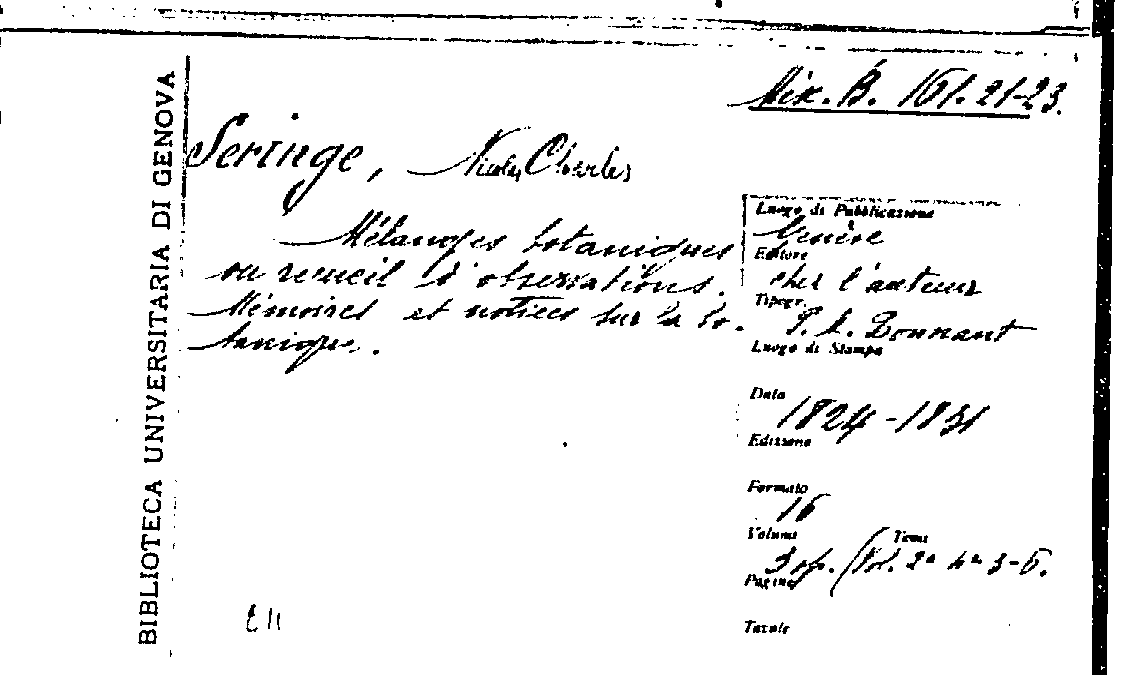 BIBLIOTECA UNIVERSITARIA DI GENOVA
Mix. B. 161. 21-23.
Seringe, Charles
Mélanges botaniques
ou recueil d'observations.
Mémoires et notices sur la bo-
tanique.
Luogo di Pubblicazione
Genève
Editore
chez l'auteur
Tipogr.
Luogo di Stampa
Data
1824-1831
Edizione
Formato
16
Volumi Tomi
3 op. (Vol. 2° n° 3-6.
Pagine
Tavole